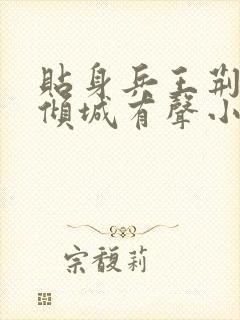 貼身兵王荆
傾城有聲小
宗馥莉